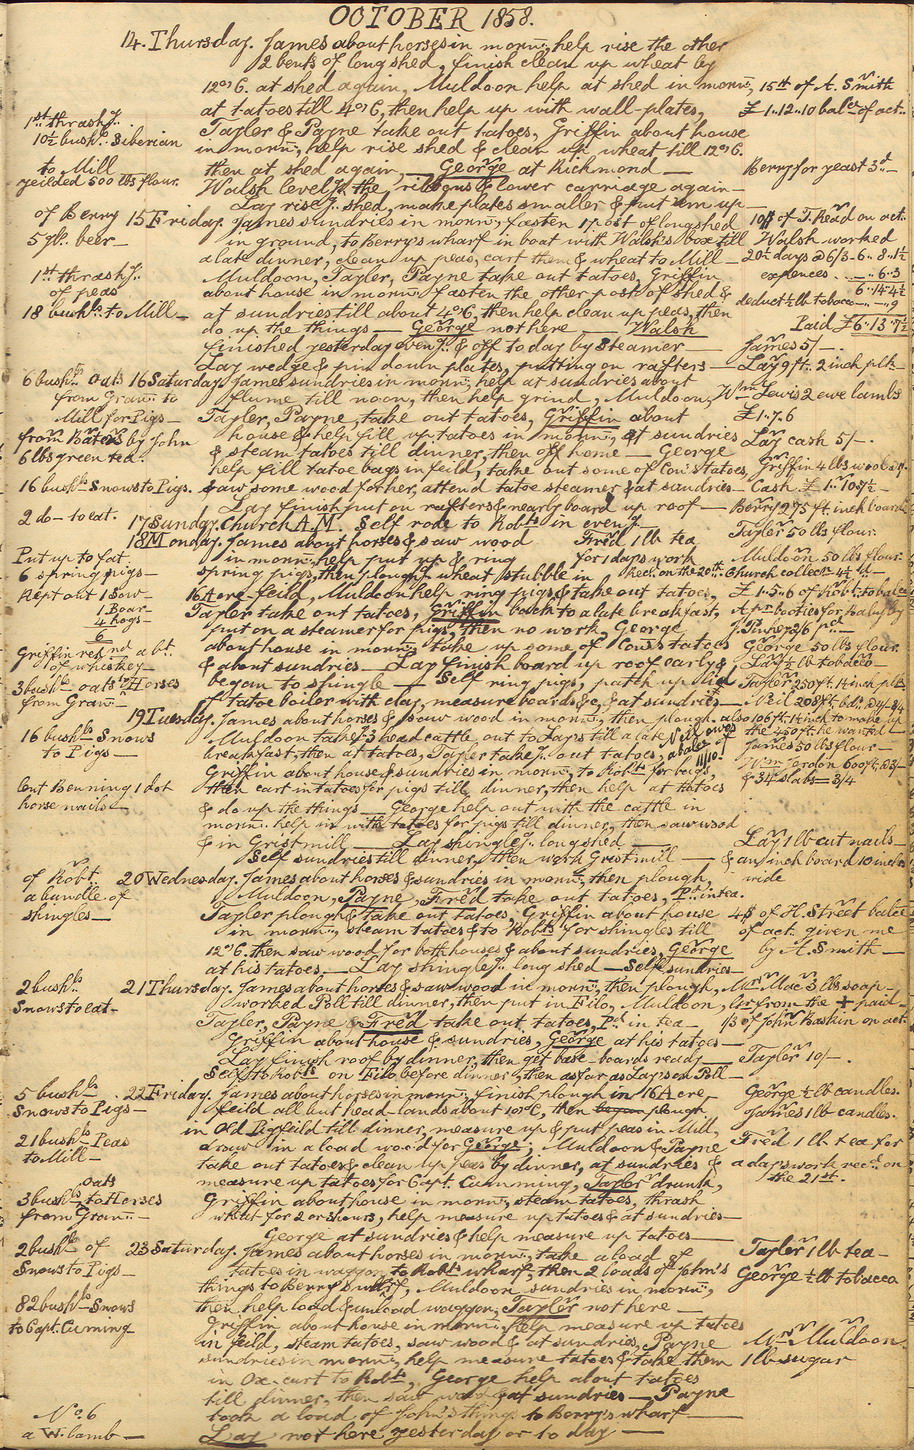 OCTOBER 1858.
14. Thursday. James about horses in morng, help rise the other
2 bents of long shed, finish clean up wheat by
12 o'c. at shed again, Muldoon help at shed in mornng, 15th of A. Smith
at tatoes till 4 o'c, then help up with wall-plates, £1..12..10 balce of act.
1st thrashg.
10½ bushls. Siberian
to Mill
yeilded 500 lbs flour.
Tayler & Payne take out tatoes, Griffin about house
in mornng, help rise shed & clean up wheat till 12 o'c.
then at shed again, George at Richmond — Berry for yeast 3d.—
Walsh levelg. the ribbons & lower carriage again —
Lay riseg. shed, make plates smaller & put 'em up —
of Berry
5 gls. beer —
1st thrashg.
of peas
18 bushls. to Mill —
15 Friday. James sundries in mornng, fasten 1 post of longshed
in ground, to Berry's wharf in boat with Walsh's box till
a late dinner, clean up peas, cart them & wheat to Mill —
Muldoon, Tayler, Payne take out tatoes, Griffin
about house in mornng. fasten the other post of shed &
at sundries till about 4 o'c, then help clean up peas, then
do up the things — George not here — Walsh
finished yesterday eveng. & off to day by Steamer —
Lay wedge & pin down plates, putting on rafters —
10/ of T. Read on act.
Walsh worked
20½ days @ 6/3 - 6..8..1½
expences — ..6..3
6..14..4½
deduct ½ lb tobaco — ..9
Paid £6..13..7½
James 5/—.
Lay 9 ft. 2 inch plk —
6 bushls. Oats
from Grany. to
Mill for Pigs —
from Bates by John
6 lbs green tea.
16 bushls. Snows to Pigs.
2 do — to eat.
16 Saturday. James sundries in mornng, help at sundries about
flume till noon, then help grind, Muldoon,
Tayler, Payne, take out tatoes, Griffin about
house & help fill up tatoes in mornng, at sundries
& steam tatoes till dinner, then off home — George
help fill tatoe bags in feild, take out some of Cow's tatoes,
saw some wood for her, attend tatoe steamer & at sundries —
Lay finish put on rafters & nearly board up roof —
Wm Lewis 2 ewe lambs
£1..7..6
Lay cash 5/—.
Griffin 4 lbs wool
Cash £1..10..7½ —
Berry 275 ft. inch boards
17 Sunday. Church A.M. Self rode to Robts in eveng.
Tayler 50 lbs flour.
Put up to fat
6 spring pigs —
Kept out 1 Sow —
1 Boar —
4 hogs —
6
Griffin retd. a bt.
of whiskey —
3 bushls oats to Horses
from Grany. —
18 Monday. James about horses & saw wood
in mornng. help put up & ring
spring pigs, then plough wheat stubble in
16 Acre feild, Muldoon help ring pigs & take out tatoes,
Tayler take out tatoes, Griffin back to a late breakfast,
put on a steamer for pigs, then no work, George
about house in mornng. take up some of Cow's tatoes
& about sundries — Lay finish board up roof early &
began to shingle — Self ring pigs, patch up lid
of tatoe boiler with clay, measure boards &c, & at sundries —
Fred 1 lb tea
for 1 days work
Recd. on the 20th.
Muldoon 50 lbs flour.
Church collectn 4/
£1..5..6 of Robt. to balce
George 50 lbs flour.
Lay ½ lb tobaco —
Tayler 250 ft. 1 inch plk
Neil 208 ft. bd.
also 106 ft. 1 inch to make up
the 450 ft. he wanted —
16 bushls Snows
to Pigs —
lent Benning 1 dot
horse nails —
19 Tuesday. James about horses & saw wood in mornng, then plough,
Muldoon take 3 head cattle out to Jays till a late
breakfast, then at tatoes, Tayler takeg. out tatoes,
Griffin about house & sundries in mornng, to Robts for bags,
then cart in tatoes for pigs till dinner, then help at tatoes
& do up the things — George help out with the cattle in
mornng. help in with tatoes for pigs till dinner, then saw wood
& in Grist mill — Lay shingleg. longshed —
Self sundries till dinner, then work Grist mill —
James 50 lbs flour —
Wm Jordon 600 ft. @ 3/—
& 34 slabs = 3/4
Lay 1 lb cut nails
& an inch board 10 inches
wide
of Robt.
a bundle of
shingles —
20 Wednesday. James about horses & sundries in mornng, then plough,
Muldoon, Payne, Fred take out tatoes, Pd. in tea.
Tayler plough & take out tatoes, Griffin about house
in mornng, steam tatoes & to Robts for shingles till
12 o'c. then saw wood for both houses & about sundries, George
at his tatoes, — Lay shingleg. long shed — Self sundries —
4$ of H. Street balce
of act. given me
by A. Smith —
2 bushls
Snows to eat —
21 Thursday. James about horses & saw wood in mornng, then plough,
worked Poll till dinner, then put in Filo, Muldoon,
Tayler, Payne & Fred take out tatoes, Pd in tea —
Griffin about house & sundries, George at his tatoes —
Lay finish roof by dinner, then get base-boards ready —
Self to Robts on Filo before dinner, then as far as Lay's on Poll —
Mrs Mac 3 lbs soap —
of John Baskin on act.
Tayler 10/—.
5 bushls
Snows to Pigs —
21 bushls Peas
to Mill —
3 bushls oats to Horses
from Grany. —
22 Friday. James about horses in mornng, finish plough in 16 Acre
feild all but head-lands about 10 o'c, then began plough
in Old Pigfeild till dinner, measure up & put peas in Mill,
draw in a load wood for George; Muldoon & Payne
take out tatoes & clean up peas by dinner, at sundries &
measure up tatoes for Capt. Cumming, Tayler drunk,
Griffin about house in mornng, steam tatoes, thrash
wheat for 2 or 3 hours, help measure up tatoes & at sundries —
George at sundries & help measure up tatoes —
George ½ lb candles.
James 1 lb candles.
Fred 1 lb tea for
a days work recd. on
the 21st.
2 bushls of
Snows to Pigs —
82 bushls Snows
to Capt. Cuming —
23 Saturday. James about horses in mornng, take a load of
tatoes in waggon to Robts wharf, then 2 loads of John's
things to Berry's wharf, Muldoon sundries in mornng,
then help load & unload waggon, Tayler not here —
Griffin about house in mornng, help measure up tatoes
in feild, steam tatoes, saw wood & at sundries, Payne
sundries in mornng, help measure tatoes & take them
in Ox-cart to Robts, George help about tatoes
till dinner, then saw wood & at sundries — Payne
took a load of John's things to Berry's wharf —
Lay not here yesterday or to day —
Tayler 1 lb tea —
George ½ lb tobacca
Mrs Muldoon
1 lb sugar
No. 6
a W. lamb —